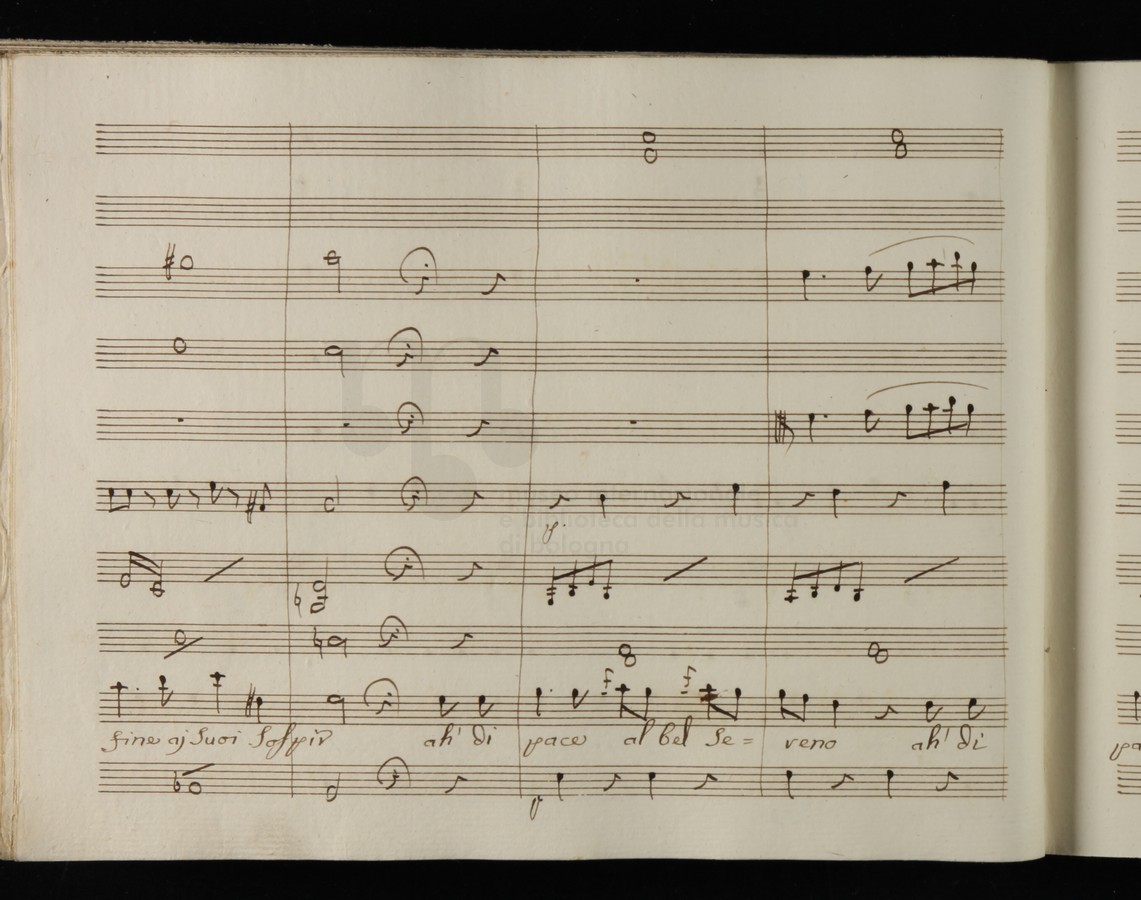 museo internazionale
e biblioteca della musica
di bologna
fine aj suoi sospir ah' di pace al bel se= reno ah' di